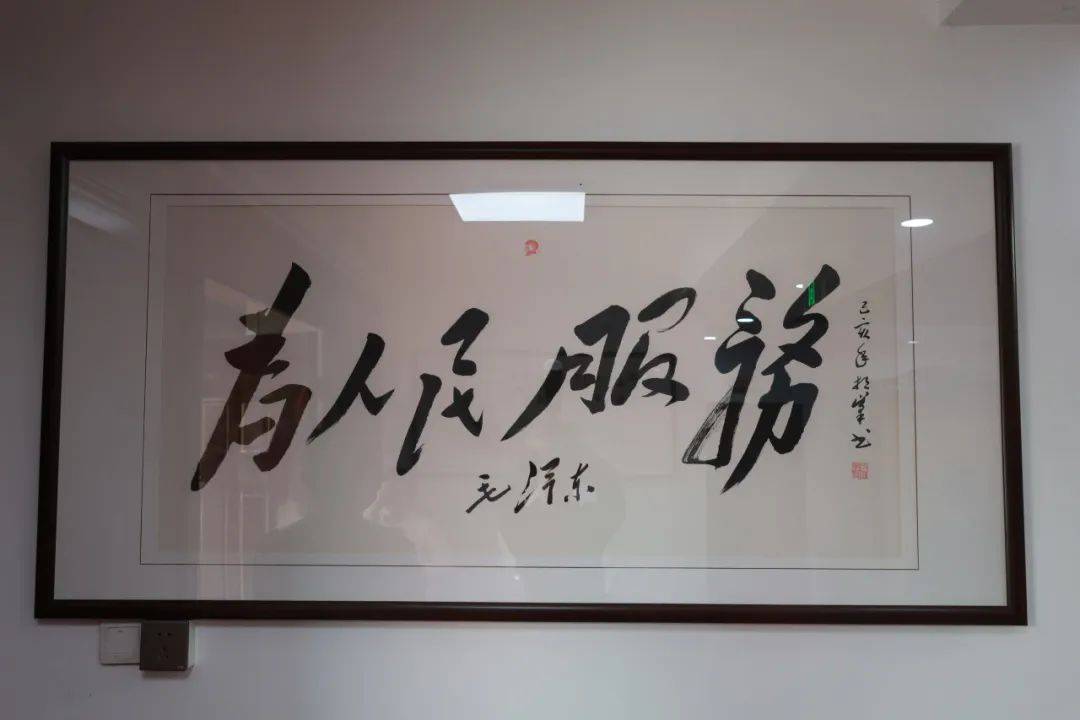 为人民服務
毛泽东
己亥年 书